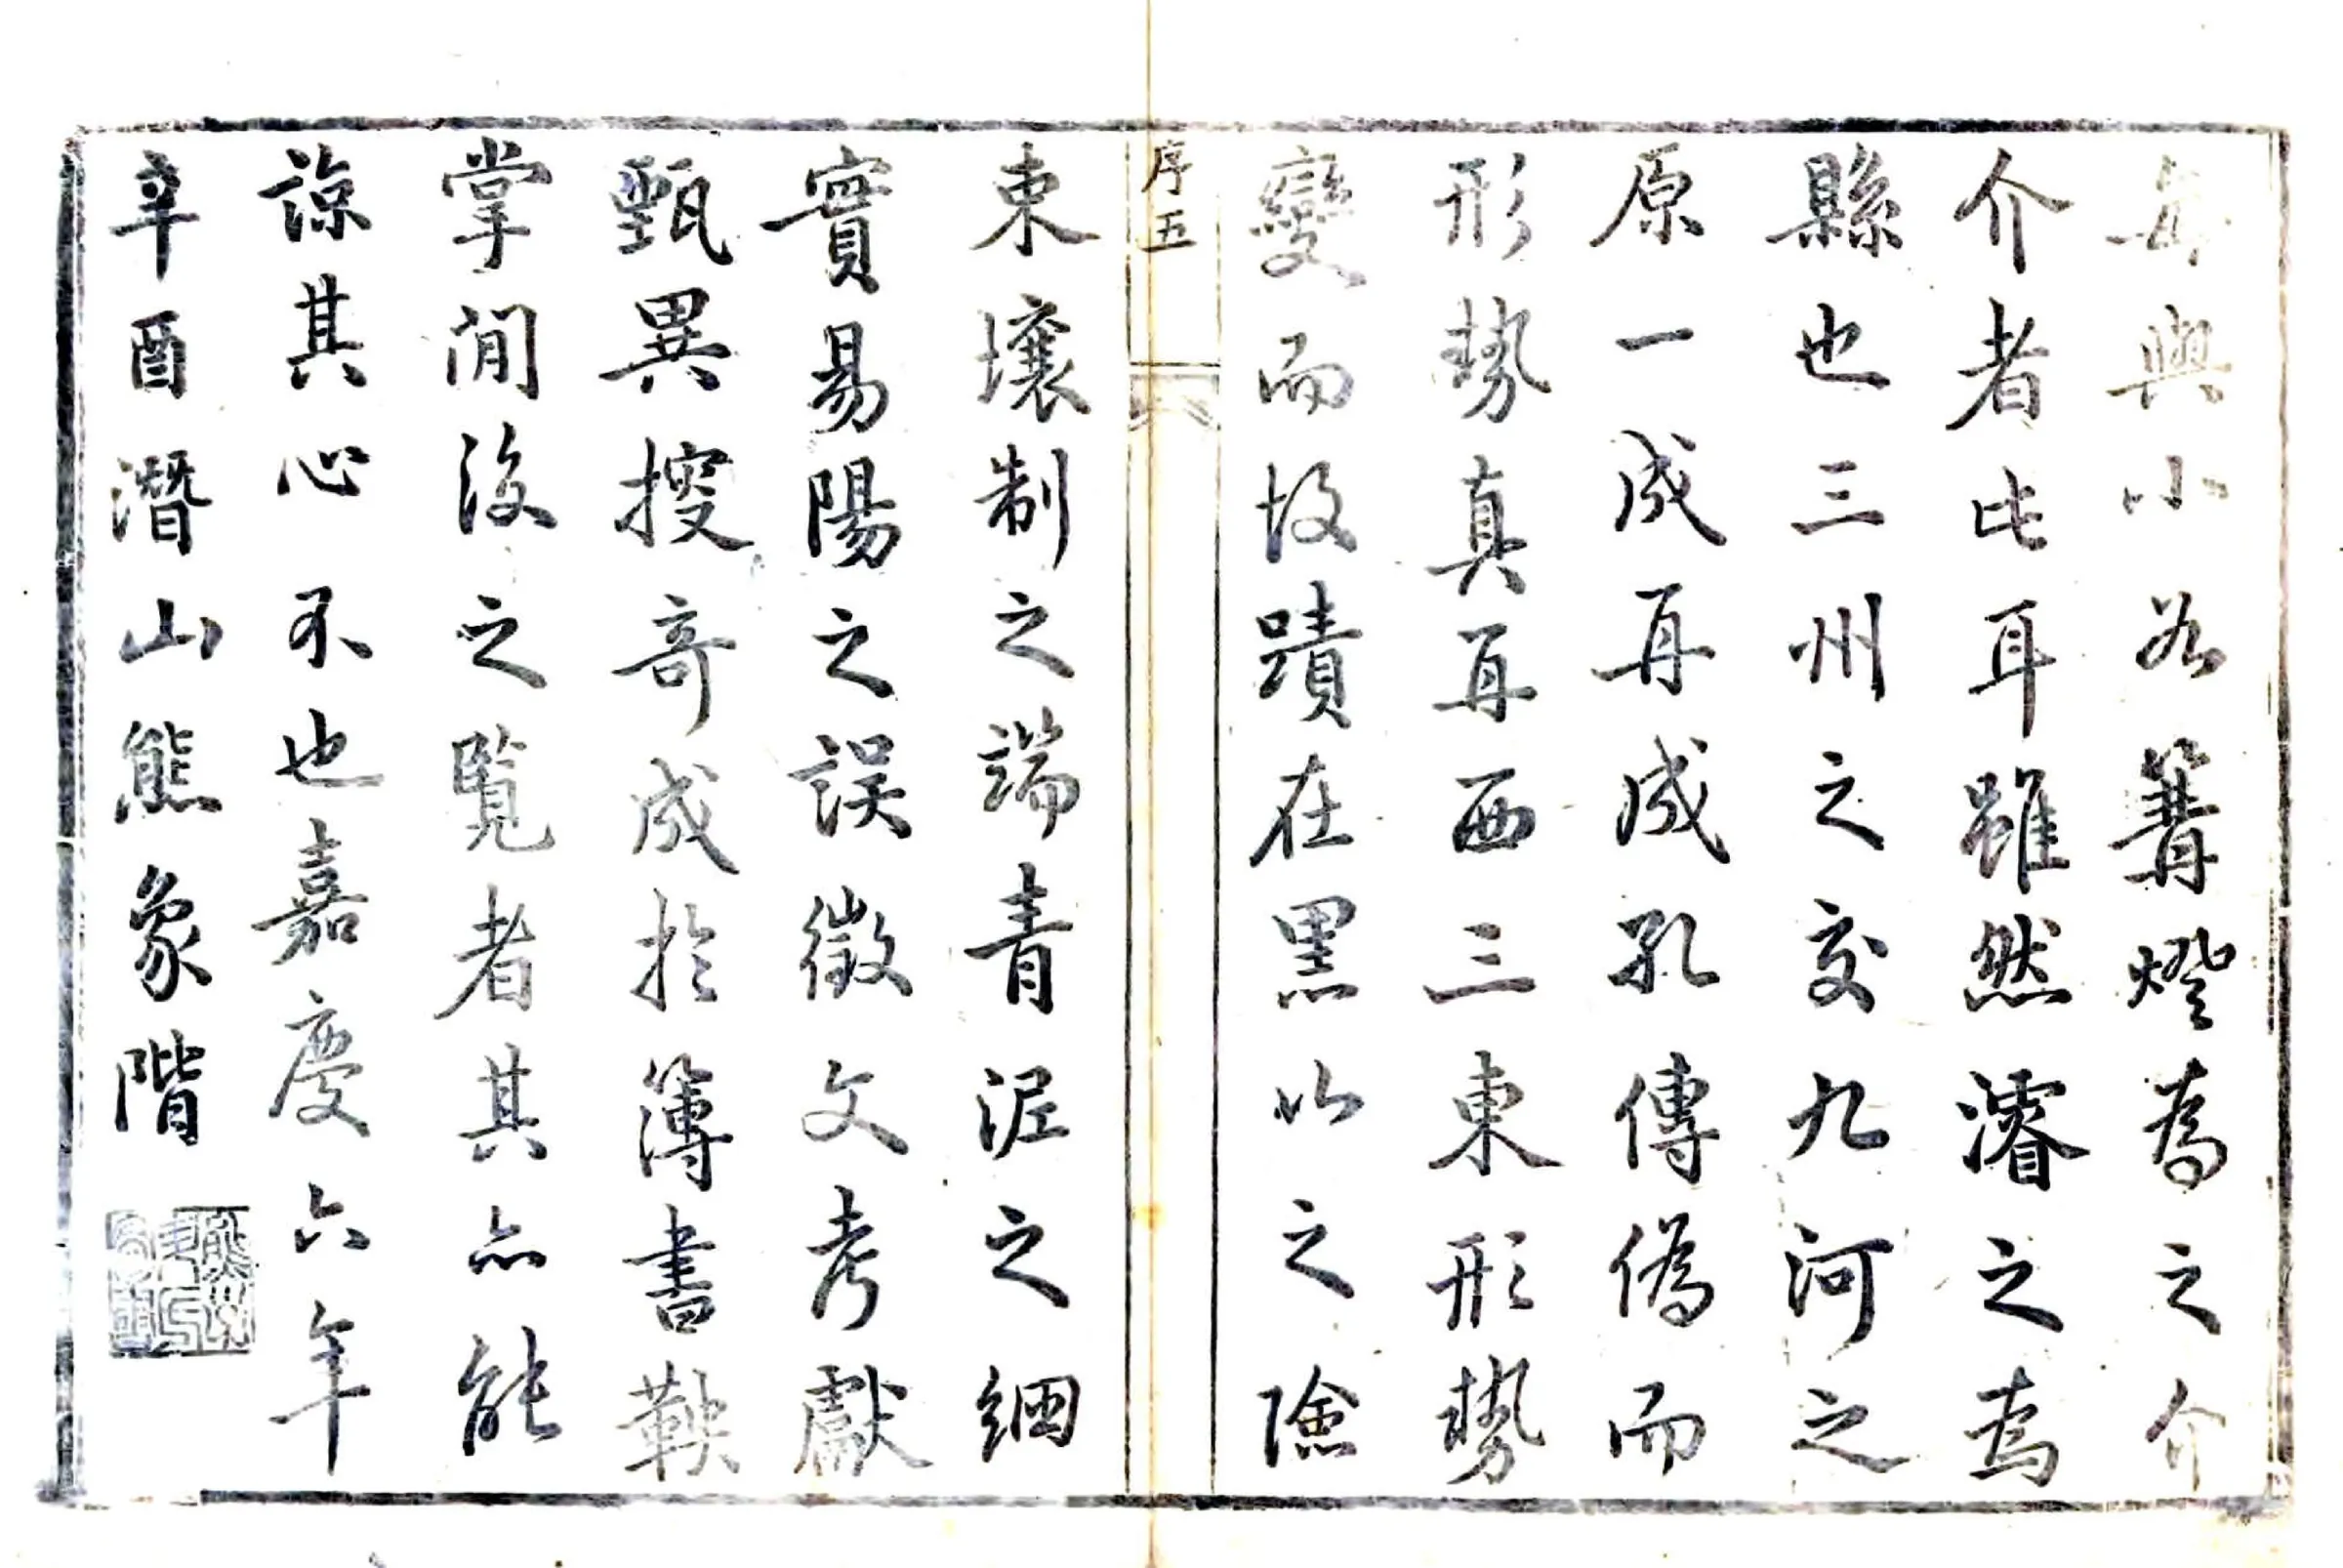 每與小谷篝燈為之介
介者比耳雖然濬之為
縣也三州之交九河之
原一成再成孔傳偽而
形勢真再西三東形勢
變而故蹟在黑山之險
序五
束壤制之端青泥之細
實易陽之誤徵文考獻
甄異搜奇成於簿書鞅
掌間後之覽者其亦能
諒其心不也嘉慶六年
辛酉潛山熊象階